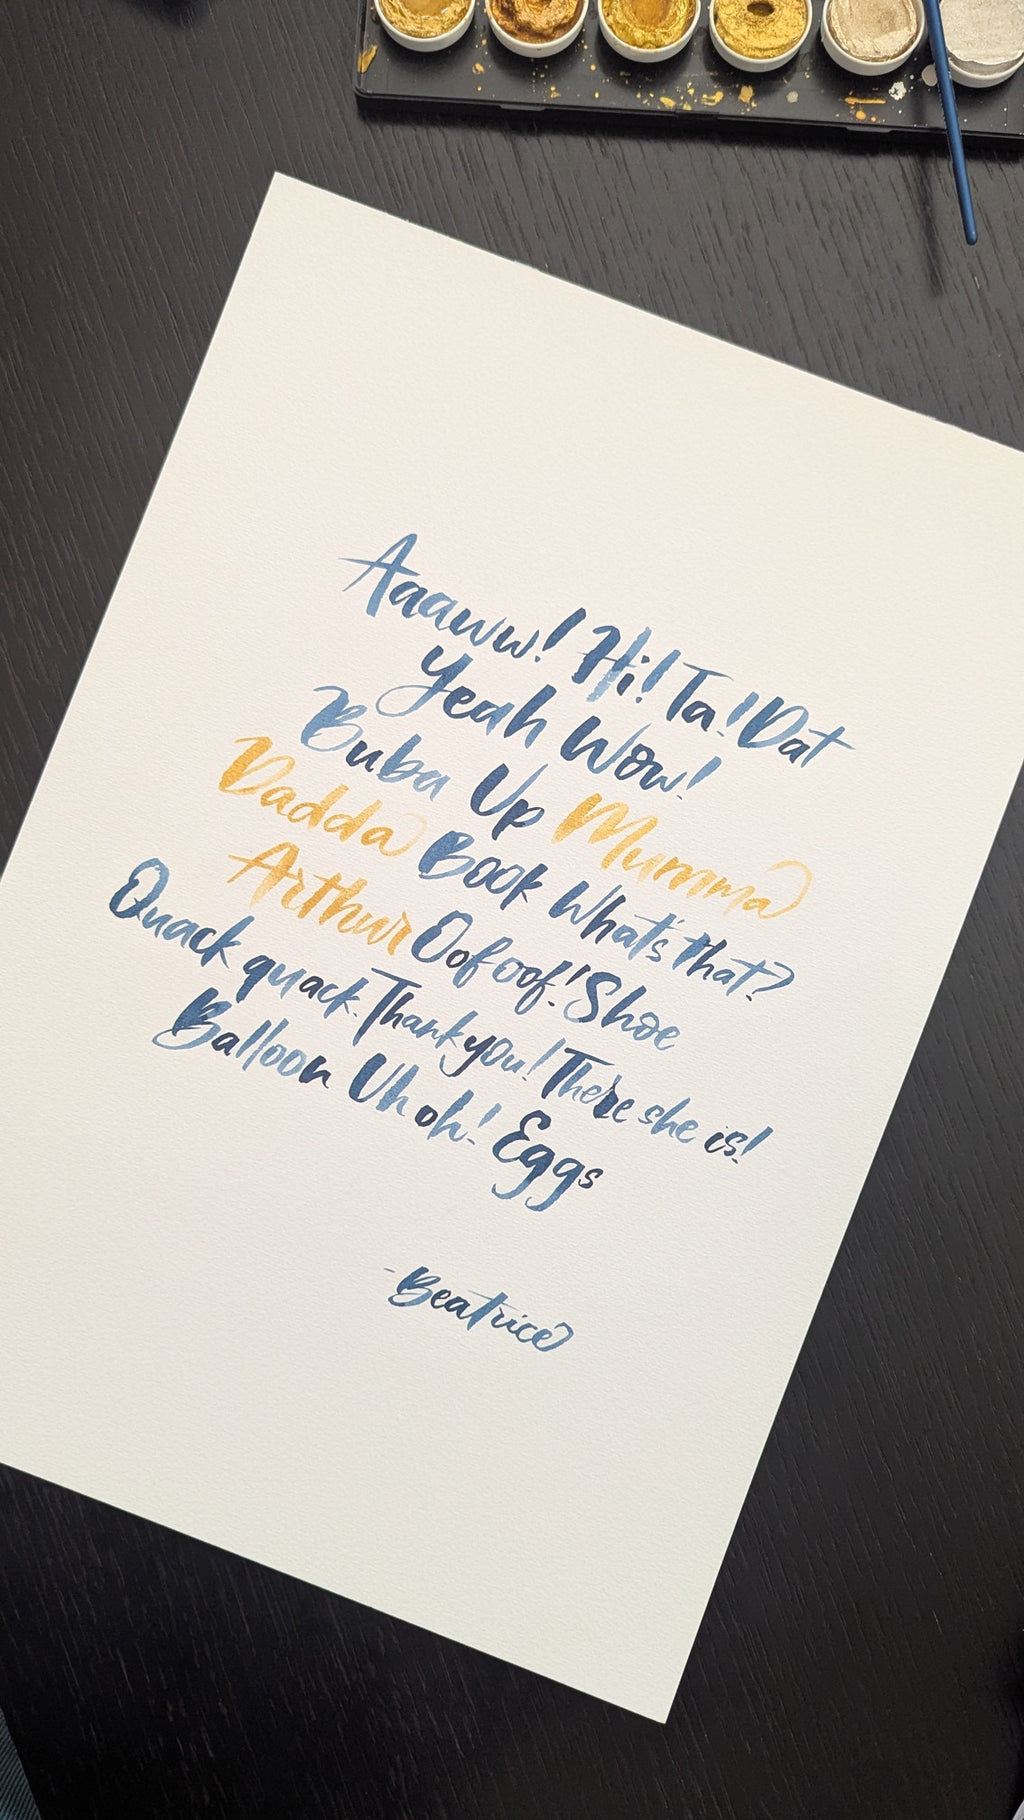 Aaaww! Hi! Ta! Dat
Yeah Wow!
Buba Up Mumma
Dadda Book What's that?
Arthur Oof oof! Shoe
Quack quack. Thank you! There she is!
Balloon Uh oh! Eggs
-Beatrice